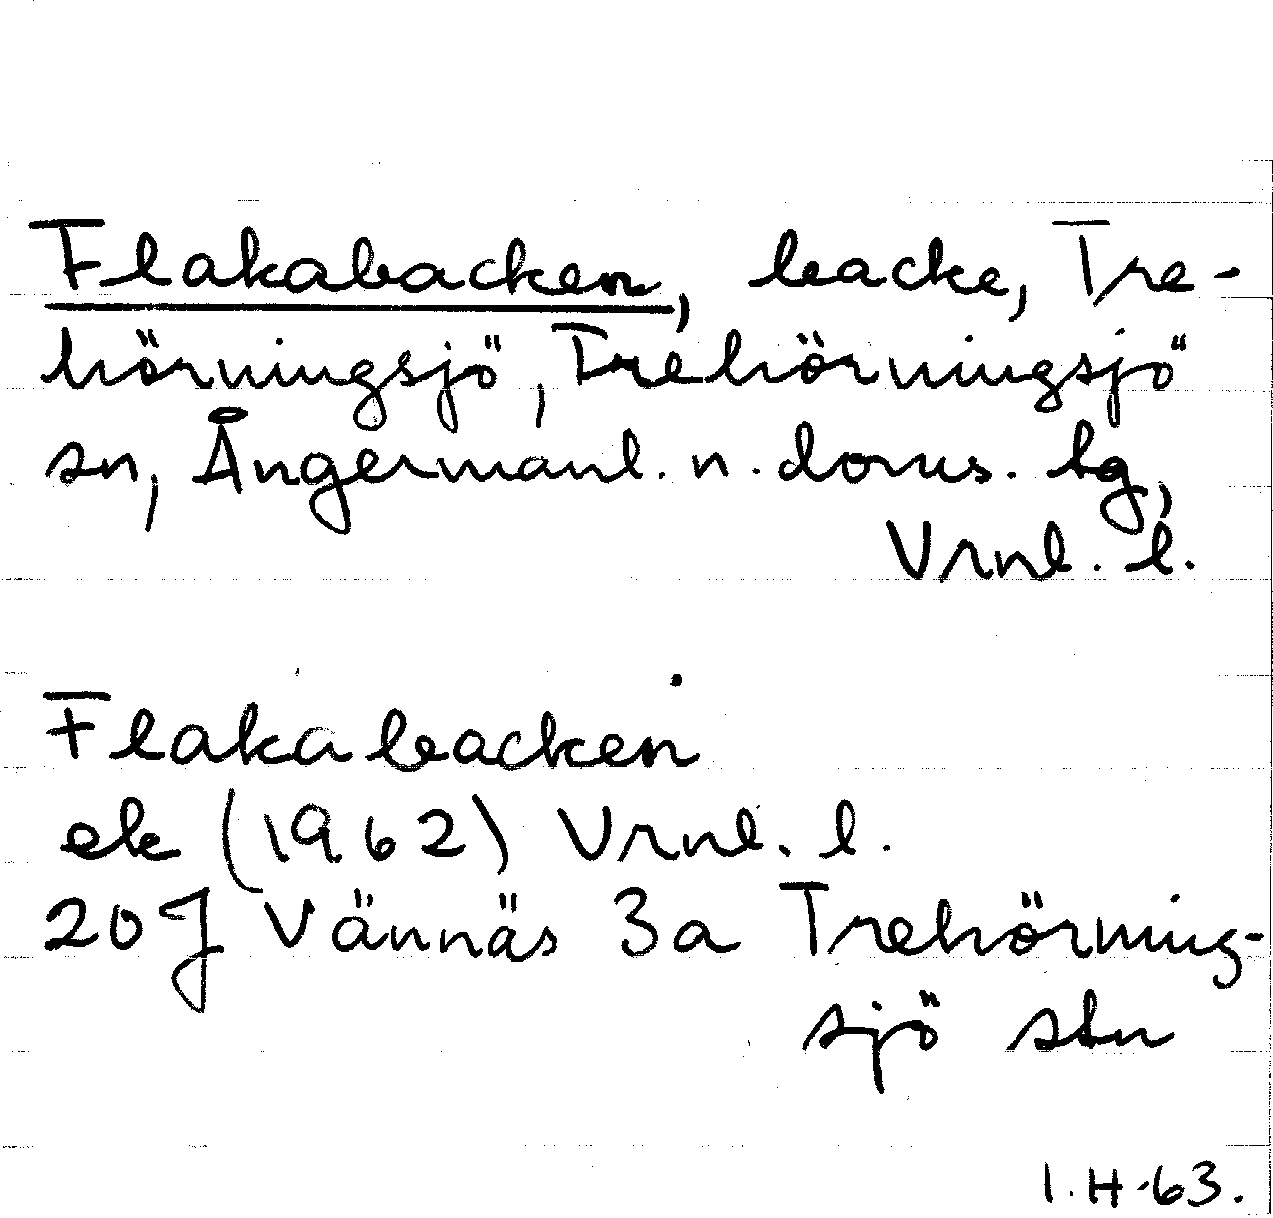 Flakabacken, backe, Tre-
hörningsjö, Trehörningsjö
sn, Ångermanl. n. doms. tg,
Vrnl. l.
Flakabacken
ek (1962) Vrnl. l.
20J Vännäs 3a Trehörning-
sjö stn
I.H-63.